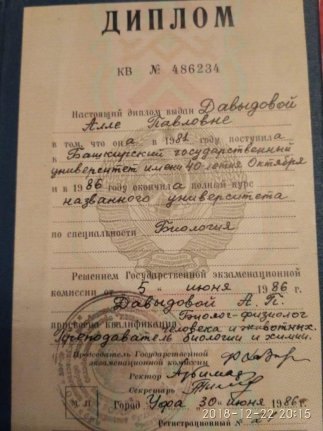 ДИПЛОМ
КВ № 486234
Настоящий диплом выдан Давыдовой
Алле Павловне
в том, что она в 1981 году поступила
в Башкирский государственный
университет имени 40-летия Октября
и в 1986 году окончила полный курс
названного университета
по специальности Биология
Решением Государственной экзаменационной
комиссии от 5 " июня 1986 г.
Давыдовой А. П.
присвоена квалификация Биолог-физиолог
человека и животных.
Преподаватель биологии и химии.
Председатель Государственной
экзаменационной комиссии
Ректор
Секретарь
М. П. Город Уфа 30 июня 1986 г.
2018-12-22 20:15
Регистрационный №